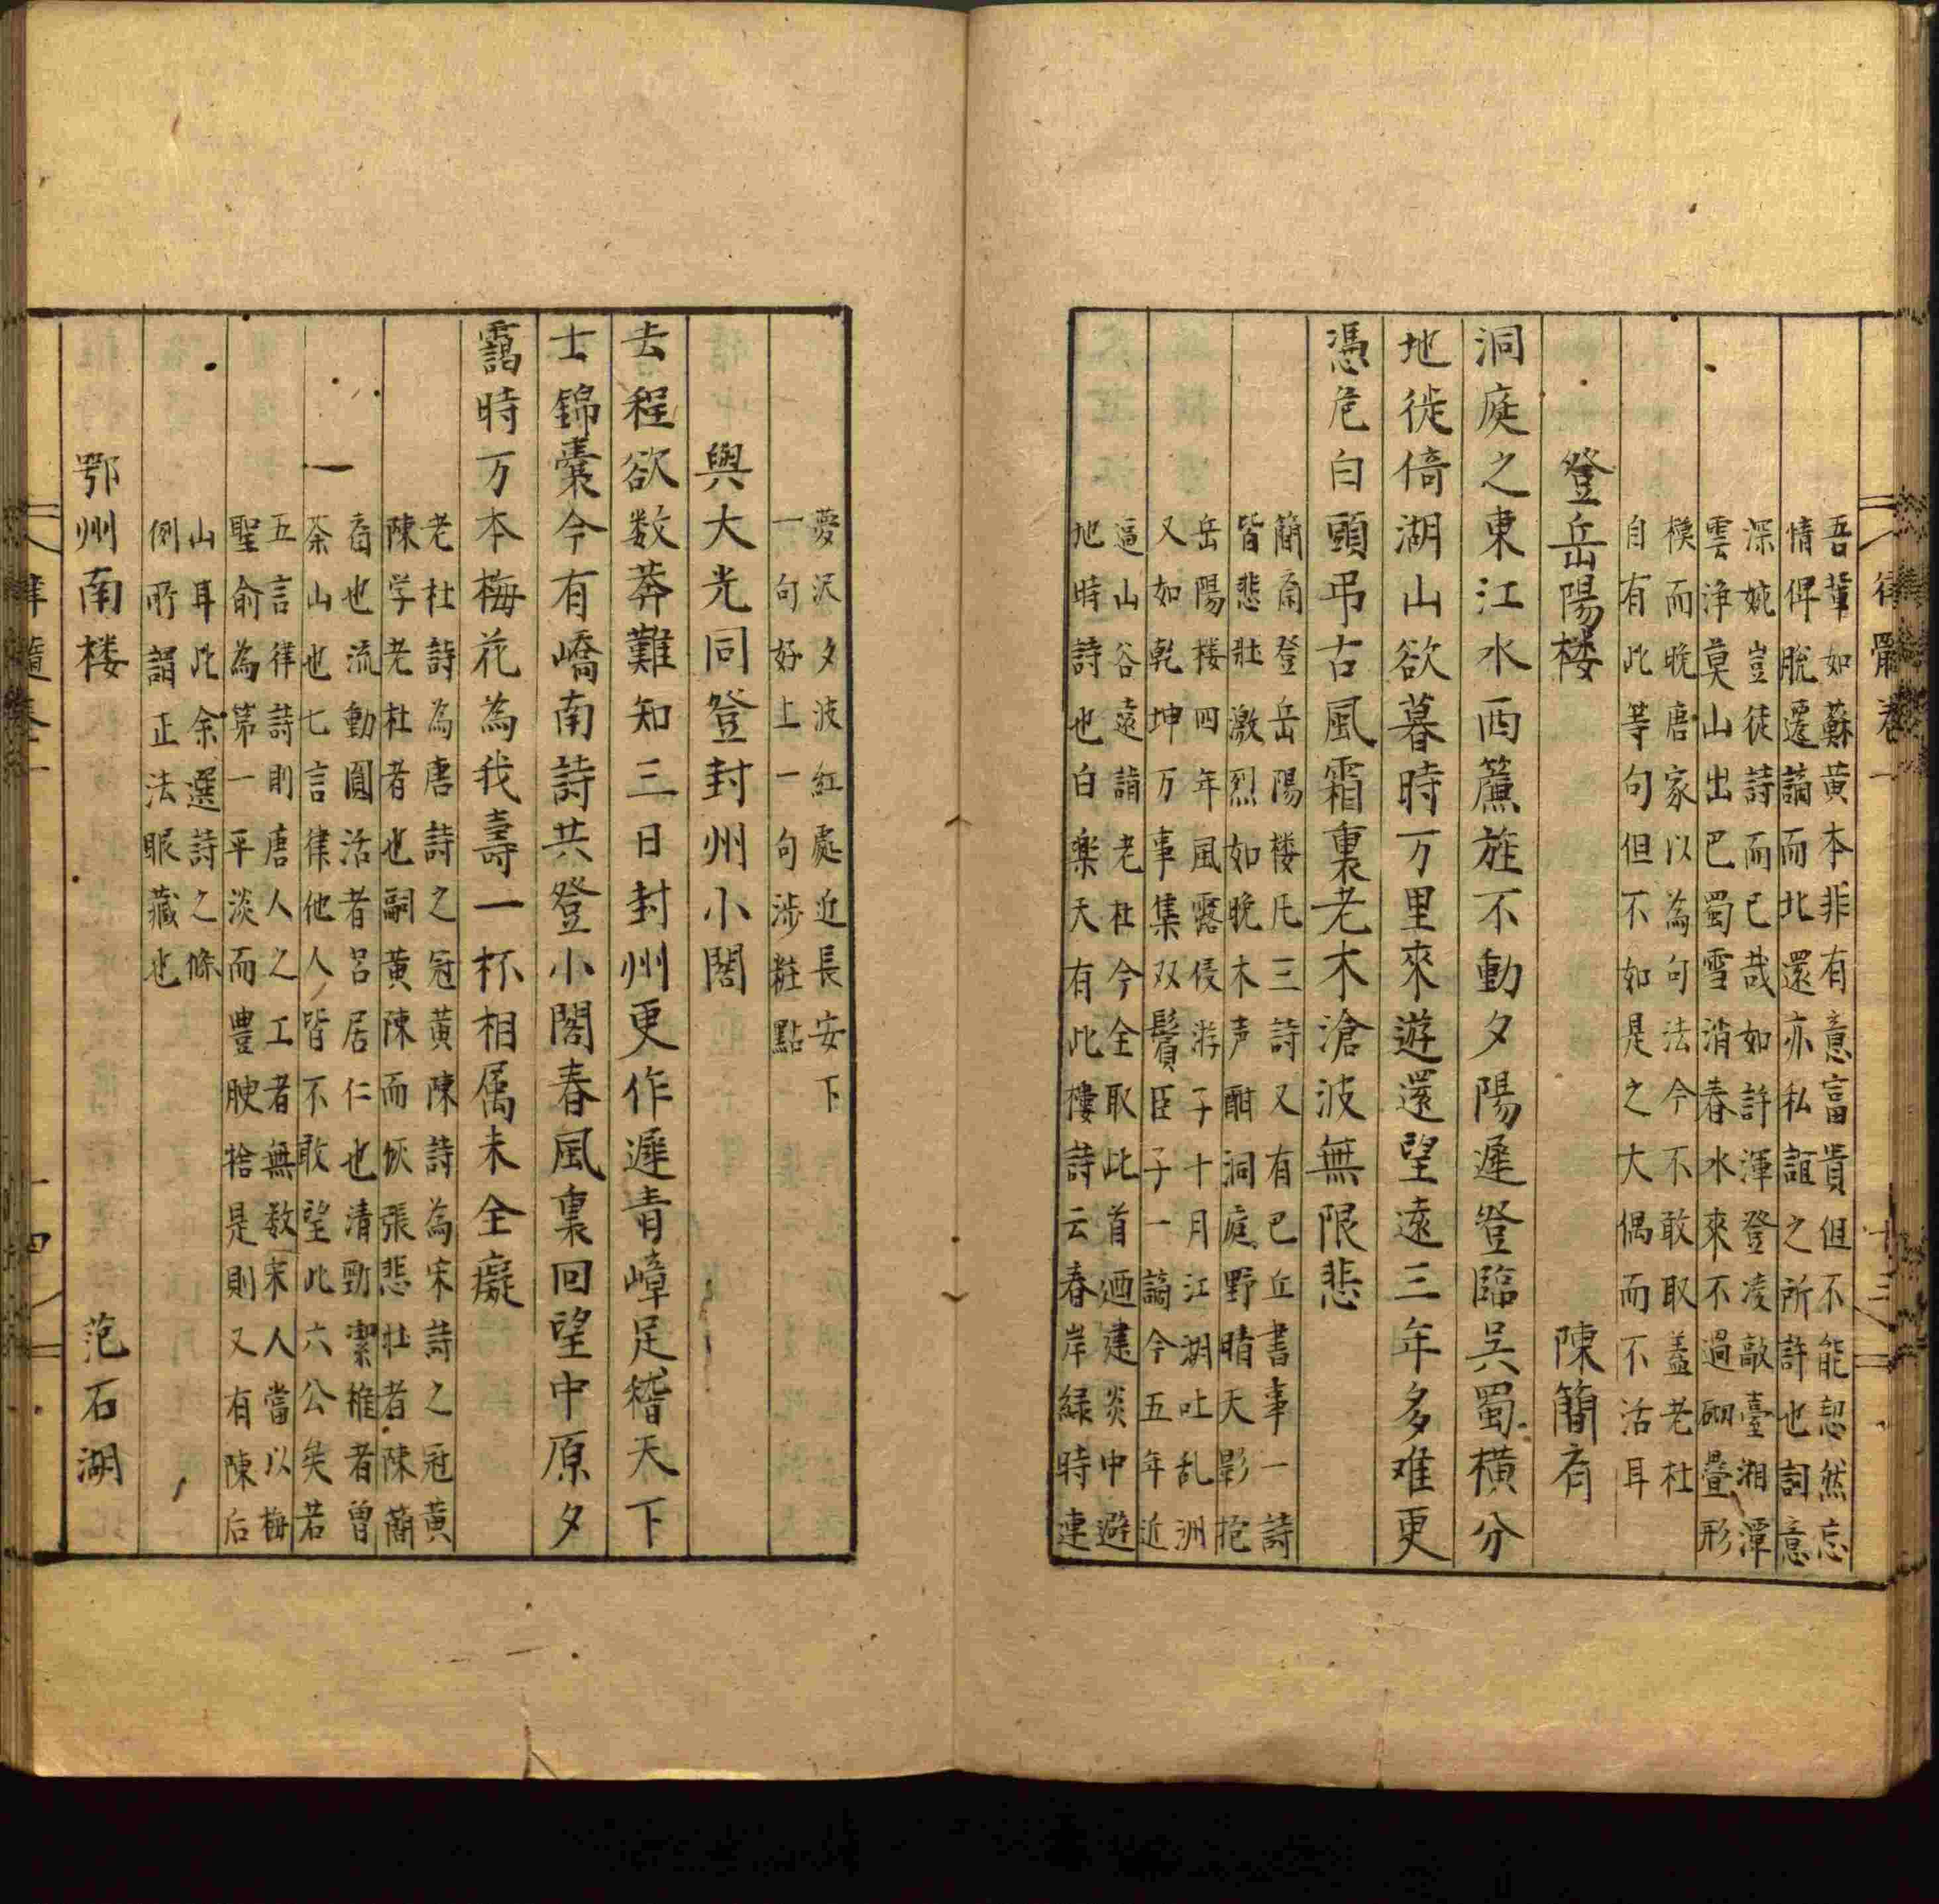 吾輩如蘇黃本非有意富貴但不能恝然忘
情俾脫遷謫而北還亦私誼之所許也詞意
深婉豈徒詩而已哉如許渾登凌歊臺湘潭
雲淨莫山出巴蜀雪消春水來不過砌疊形
模而晚唐家以為句法今不敢取蓋老杜
自有此等句但不如是之大偶而不活耳
登岳陽楼 陳簡斎
洞庭之東江水西簾旌不動夕陽遲登臨吳蜀橫分
地徙倚湖山欲暮時万里來遊還望遠三年多难更
憑危白頭弔古風霜裏老木滄波無限悲
簡斎登岳陽楼凡三詩又有巴丘書事一詩
皆悲壯激烈如晚木声酣洞庭野晴天影抱
岳陽楼四年風露侵游子十月江湖吐乱洲
又如乾坤万事集双鬢臣子一謫今五年近
逼山谷遠詣老杜今全取此首迺建炎中避
地時詩也白樂天有此樓詩云春岸緑時連
夢沢夕波紅處近長安下
一句好上一句涉粧點
與大光同登封州小閣
去程欲数莽難知三日封州更作遲青嶂足稽天下
士錦囊今有嶠南詩共登小閣春風裏回望中原夕
靄時万本梅花為我壽一杯相属未全癡
老杜詩為唐詩之冠黃陳詩為宋詩之冠黃
陳学老杜者也嗣黃陳而恢張悲壯者陳簡
斎也流動圓活者呂居仁也清勁潔雅者曾
茶山也七言律他人皆不敢望此六公矣若
五言律詩則唐人之工者無数宋人當以梅
聖俞為第一平淡而豊腴捨是則又有陳后
山耳此余選詩之條
例所謂正法眼藏也
鄂州南楼 范石湖